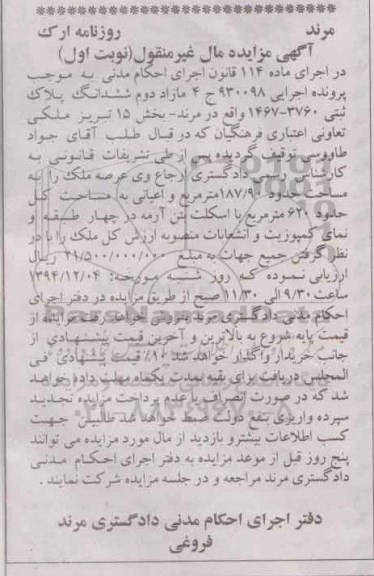 مرند روزنامه ارک
آگهی مزایده مال غیرمنقول(نوبت اول)
در اجرای ماده ۱۱۴ قانون اجرای احکام مدنی به موجب
پرونده اجرایی ۹۳۰۰۹۸ ج ۴ مازاد دوم ششدانگ پلاک
ثبتی ۳۷۶۰-۱۴۶۷ واقع در مرند- بخش ۱۵ تبریز ملکی
تعاونی اعتباری فرهنگیان که در قبال طلب آقای جواد
طاووسی توقیف گردیده پس از طی تشریفات قانونی به
کارشناس رسمی دادگستری ارجاع وی عرصه ملک را به
مساحت حدود ۱۸۷/۹۰مترمربع و اعیانی به مساحت کل
حدود ۶۲۰ مترمربع با اسکلت بتن آرمه در چهار طبقه و
نمای کمپوزیت و انشعابات منصوبه ارزش کل ملک را با در
نظر گرفتن جمیع جهات به مبلغ ۲۱/۵۰۰/۰۰۰/۰۰۰ ریال
ارزیابی نموده که روز شنبه مورخه: ۱۳۹۴/۱۲/۰۴
ساعت ۹/۳۰ الی ۱۱/۳۰ صبح از طریق مزایده در دفتر اجرای
احکام مدنی دادگستری مرند بفروش خواهد رفت مزایده از
قیمت پایه شروع به بالاترین و آخرین قیمت پیشنهادی از
جانب خریدار واگذار خواهد شد ۱۰٪ قیمت پیشنهادی فی
المجلس دریافت برای بقیه بمدت یکماه مهلت داده خواهد
شد که در صورت انصراف یا عدم پرداخت مزایده تجدید
سپرده واریزی بنفع دولت ضبط خواهد شد طالبین جهت
کسب اطلاعات بیشتر و بازدید از مال مورد مزایده می توانند
پنج روز قبل از موعد مزایده به دفتر اجرای احکام مدنی
دادگستری مرند مراجعه و در جلسه مزایده شرکت نمایند .
دفتر اجرای احکام مدنی دادگستری مرند
فروغی